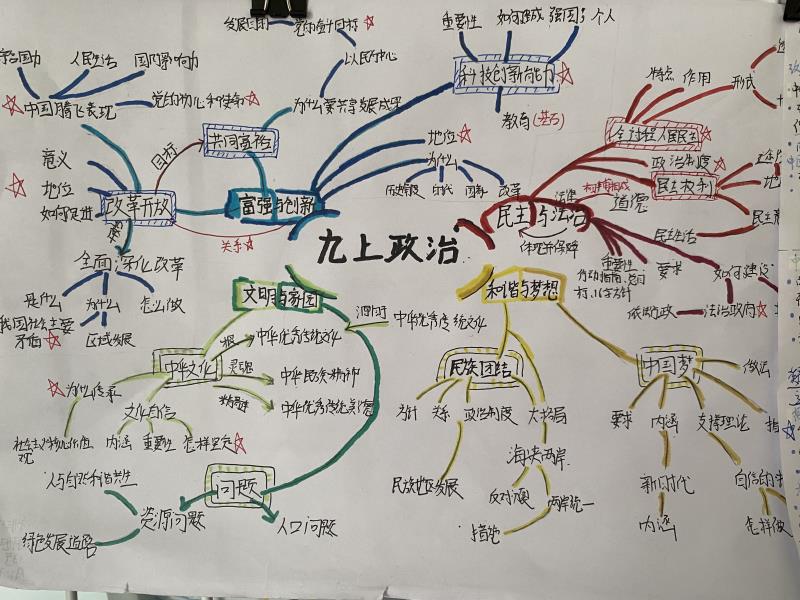 发展目的
党的奋斗目标
以人民为中心
为什么要共享发展成果
人民生活
国际影响力
中国腾飞表现
共同富裕
目标
意义
地位
如何促进
改革开放
富强与创新
关系
全面深化改革
是什么
为什么
怎么做
我国社会主要
矛盾
区域发展
重要性
强国
个人
科技创新能力
教育(基石)
地位
为什么
历史阶段
时代
国际
改革
九上政治
民主与法治
法律
道德
特点
作用
形式
全过程人民民主
政治制度
民主权利
民主生活
重要性
要求
如何建设
依法行政
法治政府
文明与家园
中华文化
根
中华优秀传统文化
灵魂
中华民族精神
中华优秀传统美德
为什么传承
文化自信
社会主义核心价值
观
内涵
重要性
怎样坚定
中华优秀传统文化
问题
人与自然和谐共生
资源问题
绿色发展道路
人口问题
和谐与梦想
民族团结
方针
关系
政治制度
大格局
民族地区发展
海峡两岸
反对分裂
两岸统一
措施
中国梦
做法
要求
内涵
支撑理论
新时代
内涵
怎样做